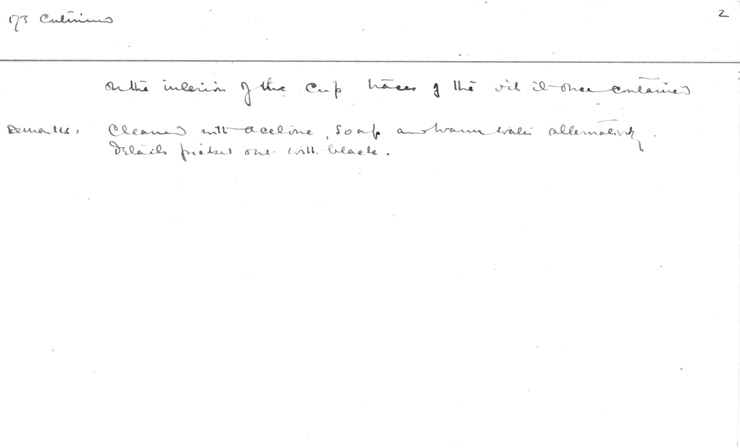 173 Continued
2
On the interior of the cup traces of the oil it once contained
Remarks. Cleaned with acetone, soap and warm water alternatively.
Details picked out with black.